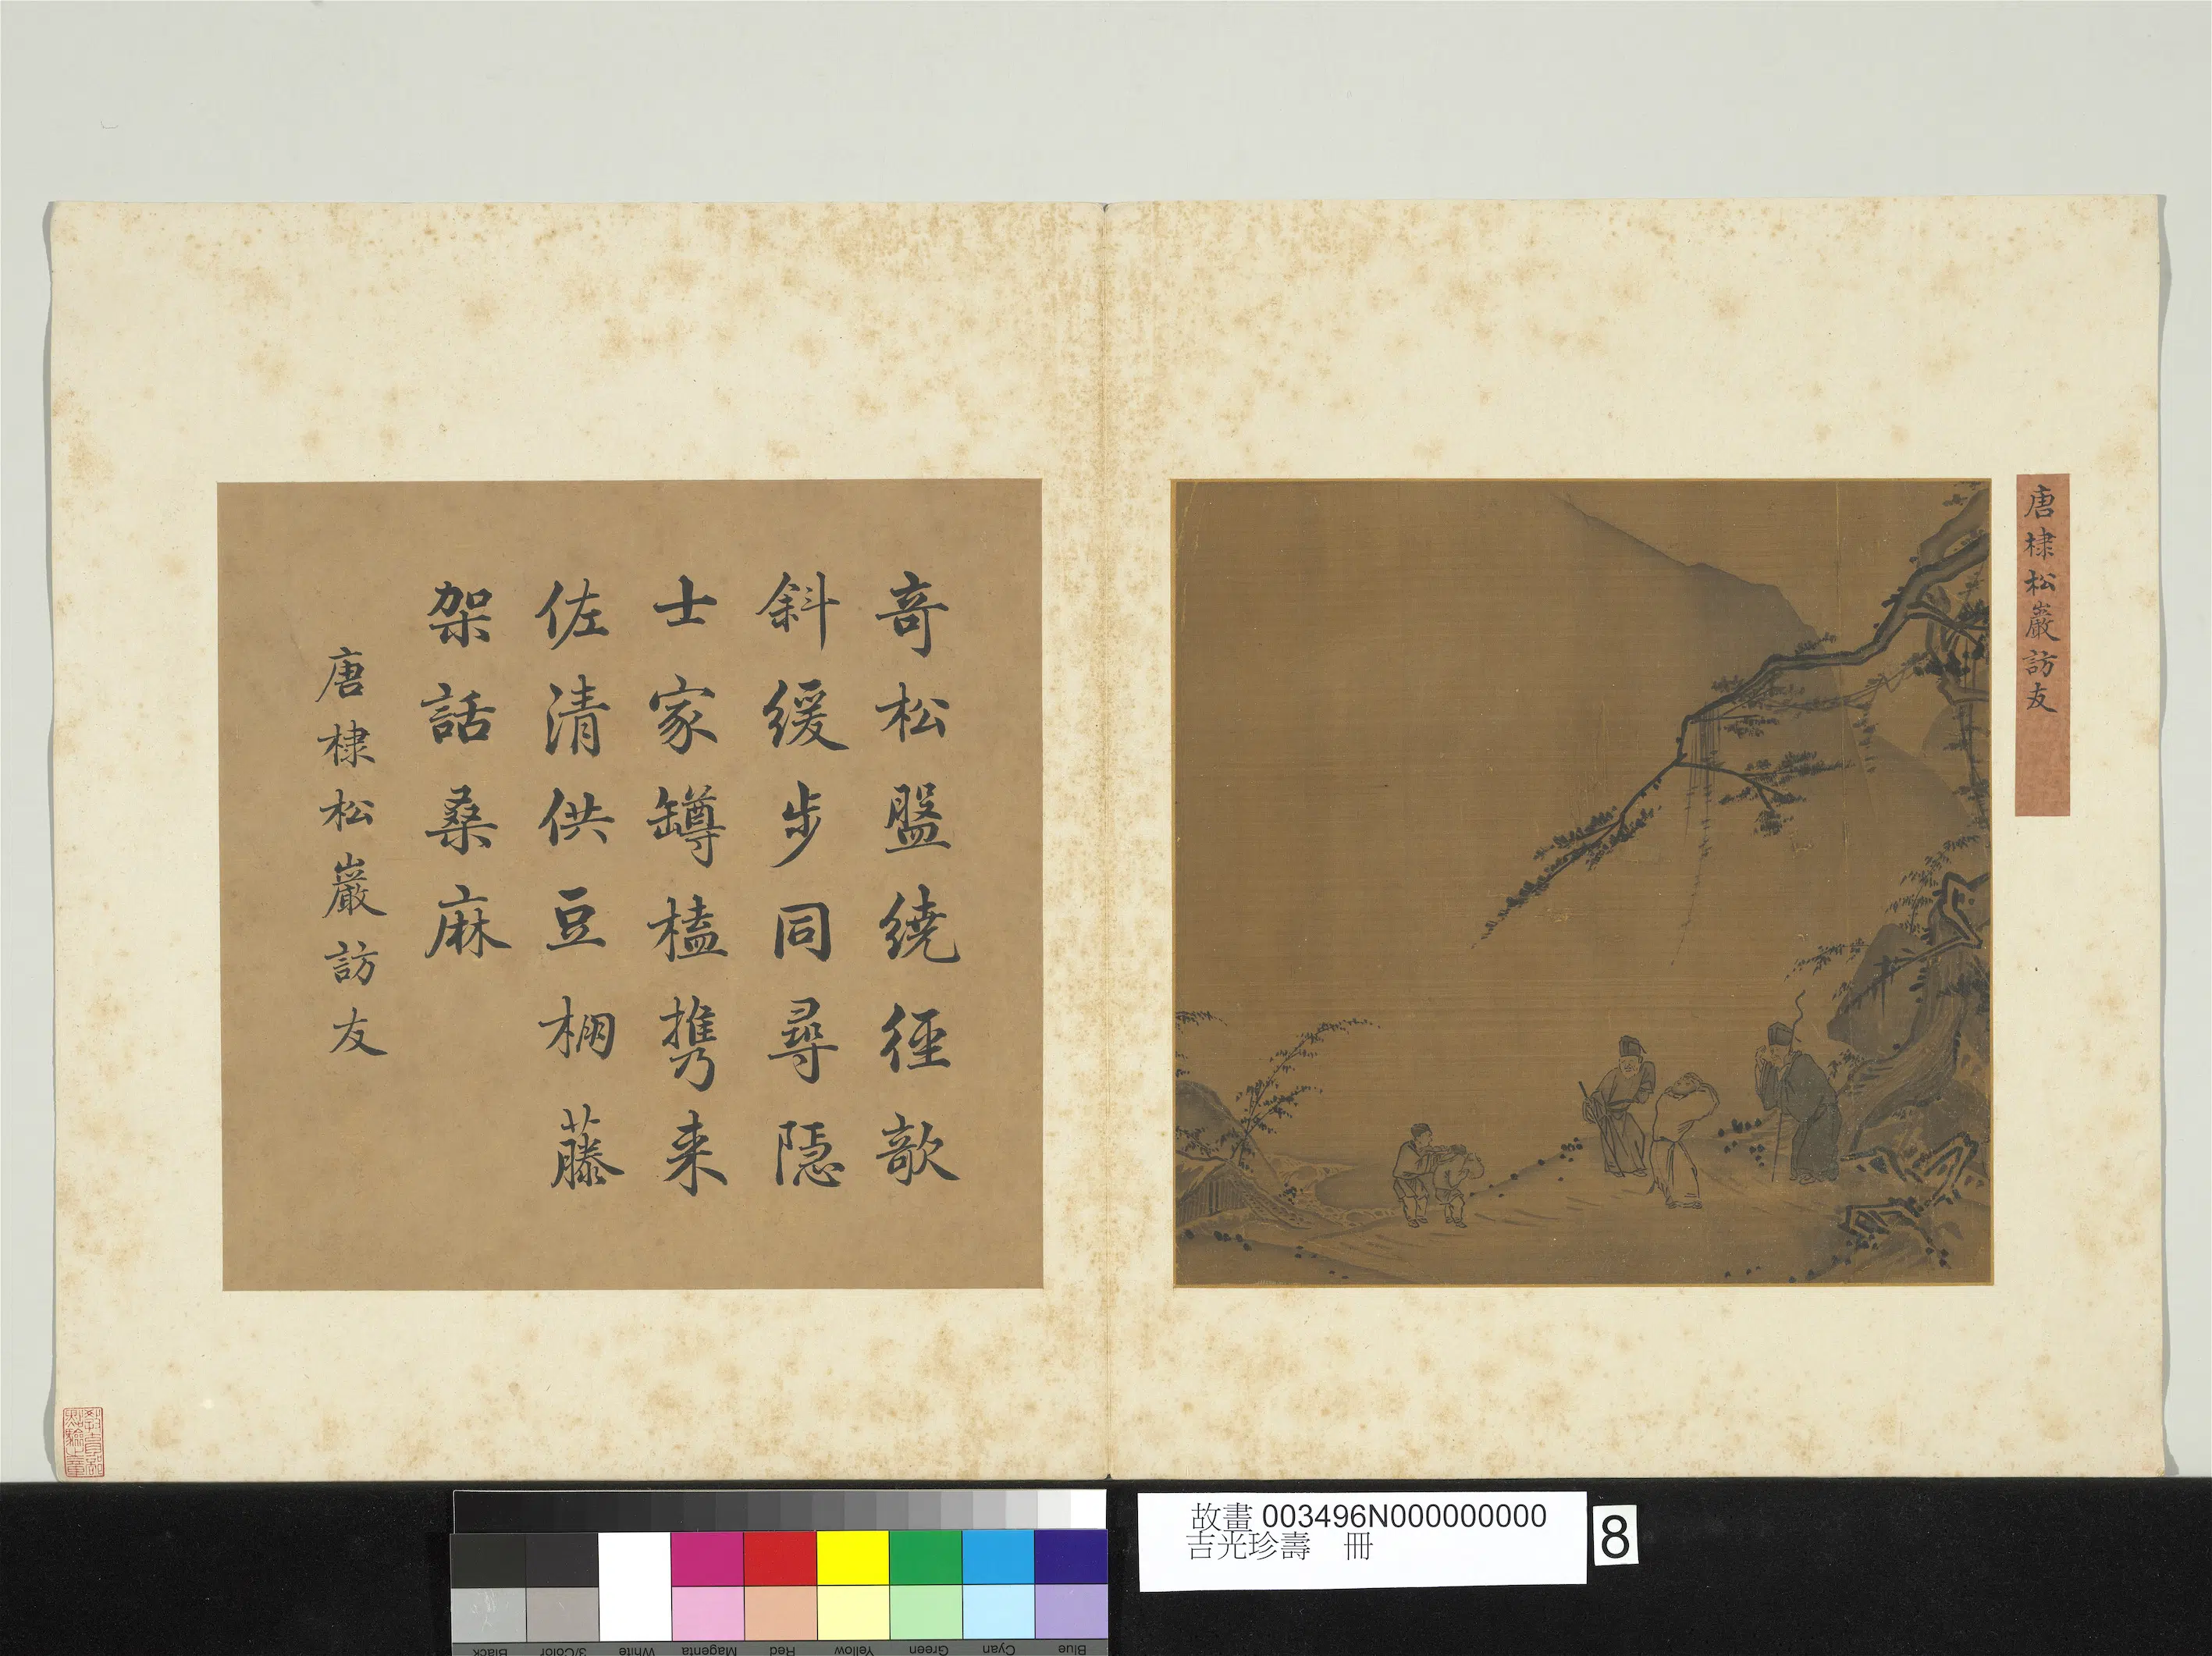 唐棣松巖訪友
奇松盤繞徑欹
斜緩步同尋隱
士家罇榼攜来
佐清供豆棚藤
架話桑麻
唐棣松巖訪友
故畫 003496N000000000
吉光珍壽 冊
8
Black
3/Color
White
Magenta
Red
Yellow
Green
Cyan
Blue